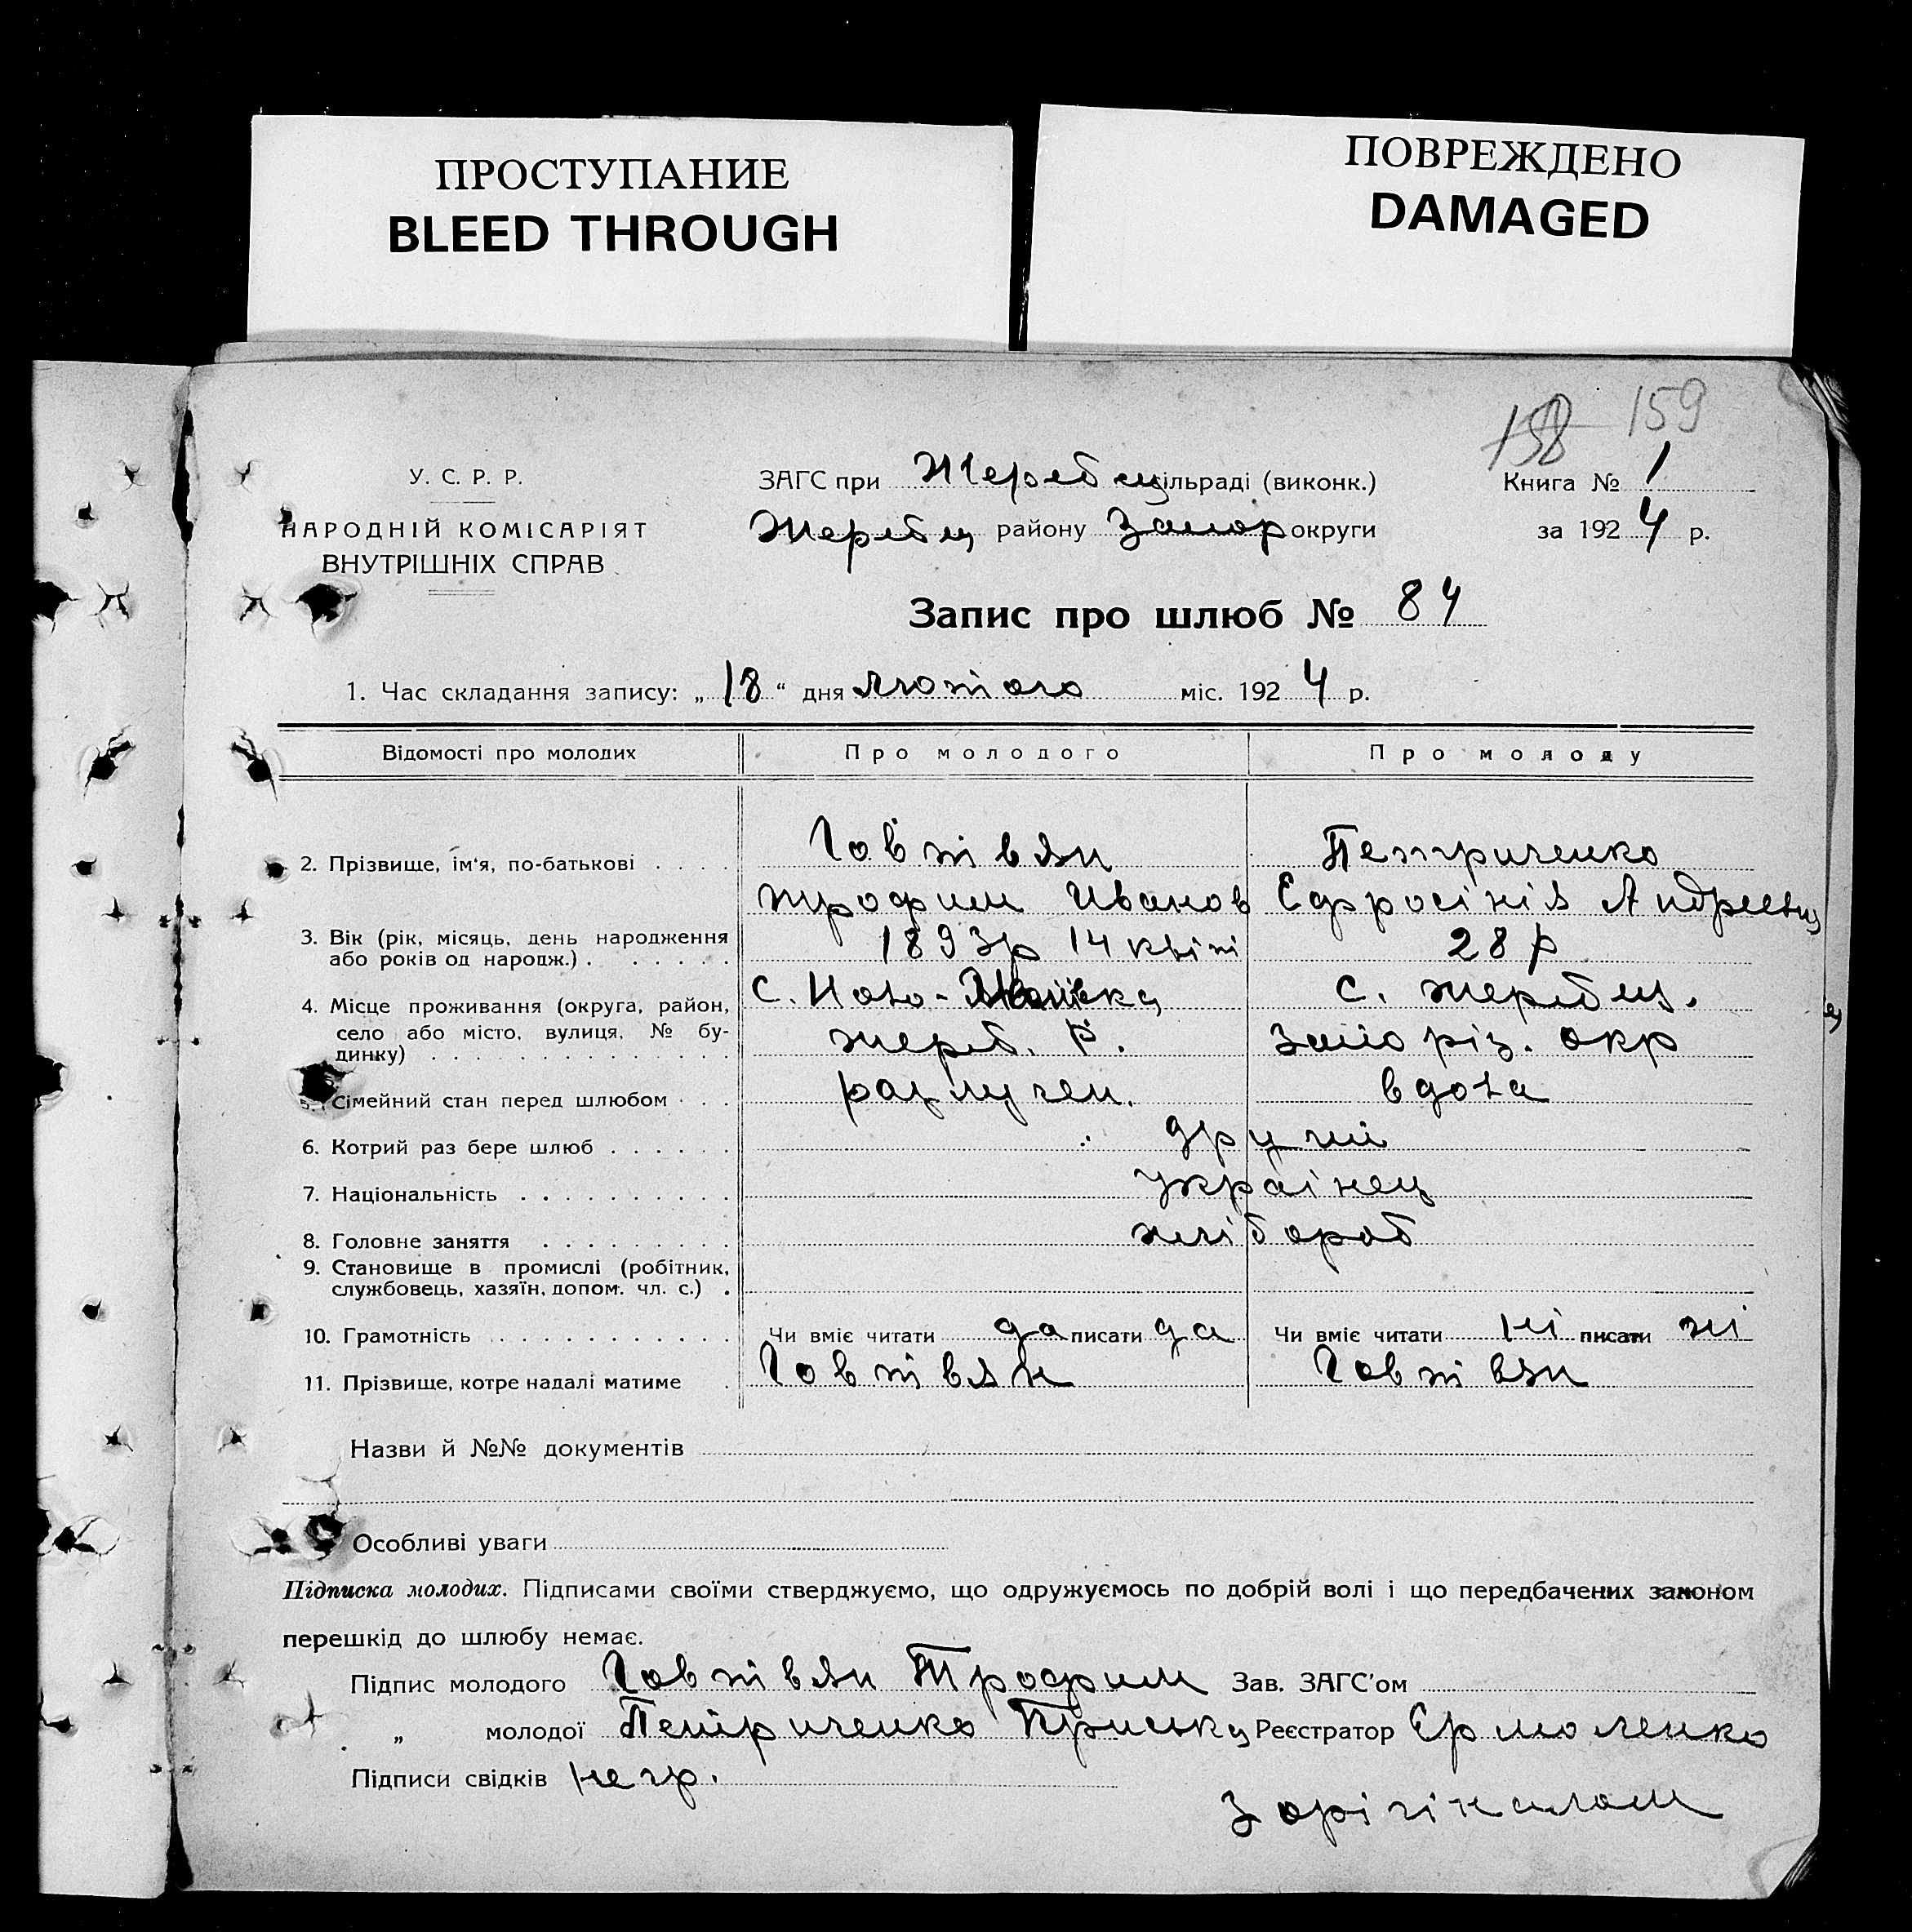 ПРОСТУПАНИЕ
BLEED THROUGH
ПОВРЕЖДЕНО
DAMAGED
158 159
У. С. Р. Р.
НАРОДНІЙ КОМІСАРІЯТ
ВНУТРІШНІХ СПРАВ
ЗАГС при Жеребец сільраді (виконк.)
Жеребец району Запор округи
Книга № 1
за 1924 р.
Запис про шлюб № 84
1. Час складання запису: „18“ дня лютого міс. 1924 р.
Відомості про молодих Про молодого Про молоду
2. Прізвище, ім'я, по-батькові . . . . Говтвян Петриченко
трофим Иванов Єфросінія Андреевц
3. Вік (рік, місяць, день народження або років од народж.) . . . . . . 1893р 14 квіт 28 р
4. Місце проживання (округа, район, село або місто, вулиця, № будинку) С. Ново- с. жеребец.
жереб. Р. запоріз. окр
5. Сімейний стан перед шлюбом . . . разлучен. вдова
6. Котрий раз бере шлюб . . . . . . другий
7. Національність . . . . . . . . . . українец
8. Головне заняття . . . . . . . . . хлібороб
9. Становище в промислі (робітник, службовець, хазяїн, допом. чл. с.) .
10. Грамотність . . . . . . . . . . . Чи вміє читати да писати да Чи вміє читати ні писати ні
11. Прізвище, котре надалі матиме . Говтвян Говтвян
Назви й №№ документів
Особливі уваги
Підписка молодих. Підписами своїми стверджуємо, що одружуємось по добрій волі і що передбачених законом
перешкід до шлюбу немає.
Підпис молодого Говтвян Трофим Зав. ЗАГС'ом
„ молодої Петриченко Реєстратор Єрмоленко
Підписи свідків негр.
З орігіналом